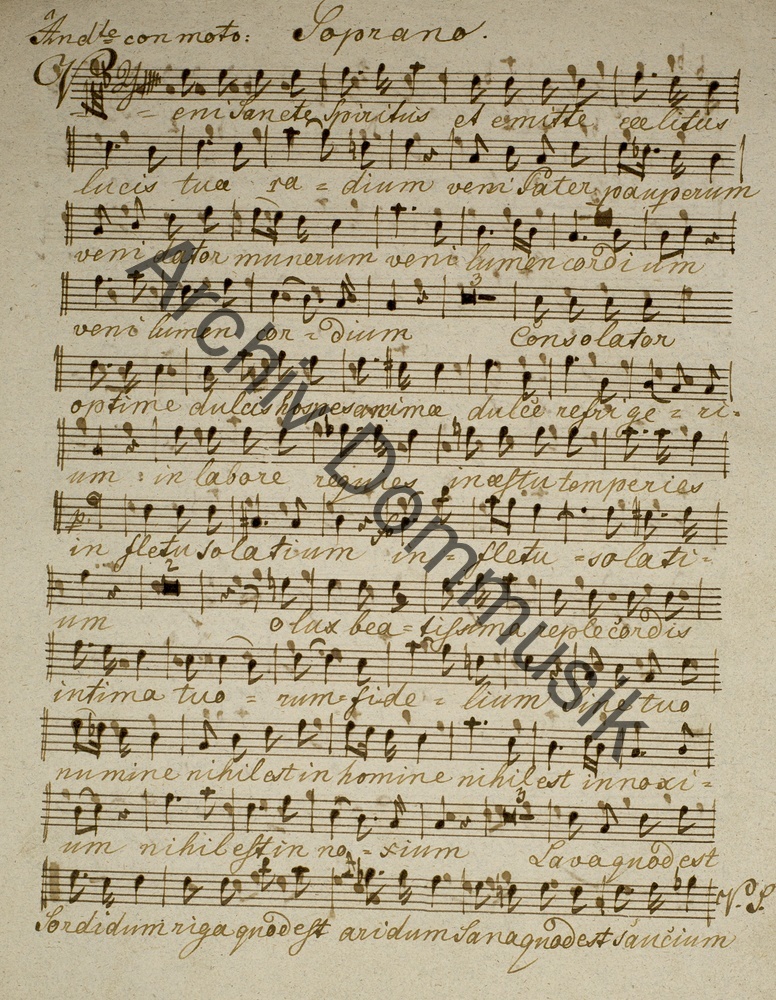 Andte con moto: Soprano.
Veni Sancte Spiritus et emitte cælitus
lucis tuæ ra = dium veni Pater pauperum
veni dator munerum veni lumen cordium
3
veni lumen cor = dium Consolator
optime dulcis hospes animæ dulce refrige = ri-
um : in labore requies in æstu temperies
in fletu solatium in = fletu = solati-
2
um o lux bea = tissima reple cordis
intima tuo = rum = fide = lium Sine tuo
numine nihil est in homine nihil est innoxi =
3
um nihil est in no = xium Lava quod est
Sordidum riga quod est aridum Sana quod est Saucium
V. S.
Archiv Dommusik